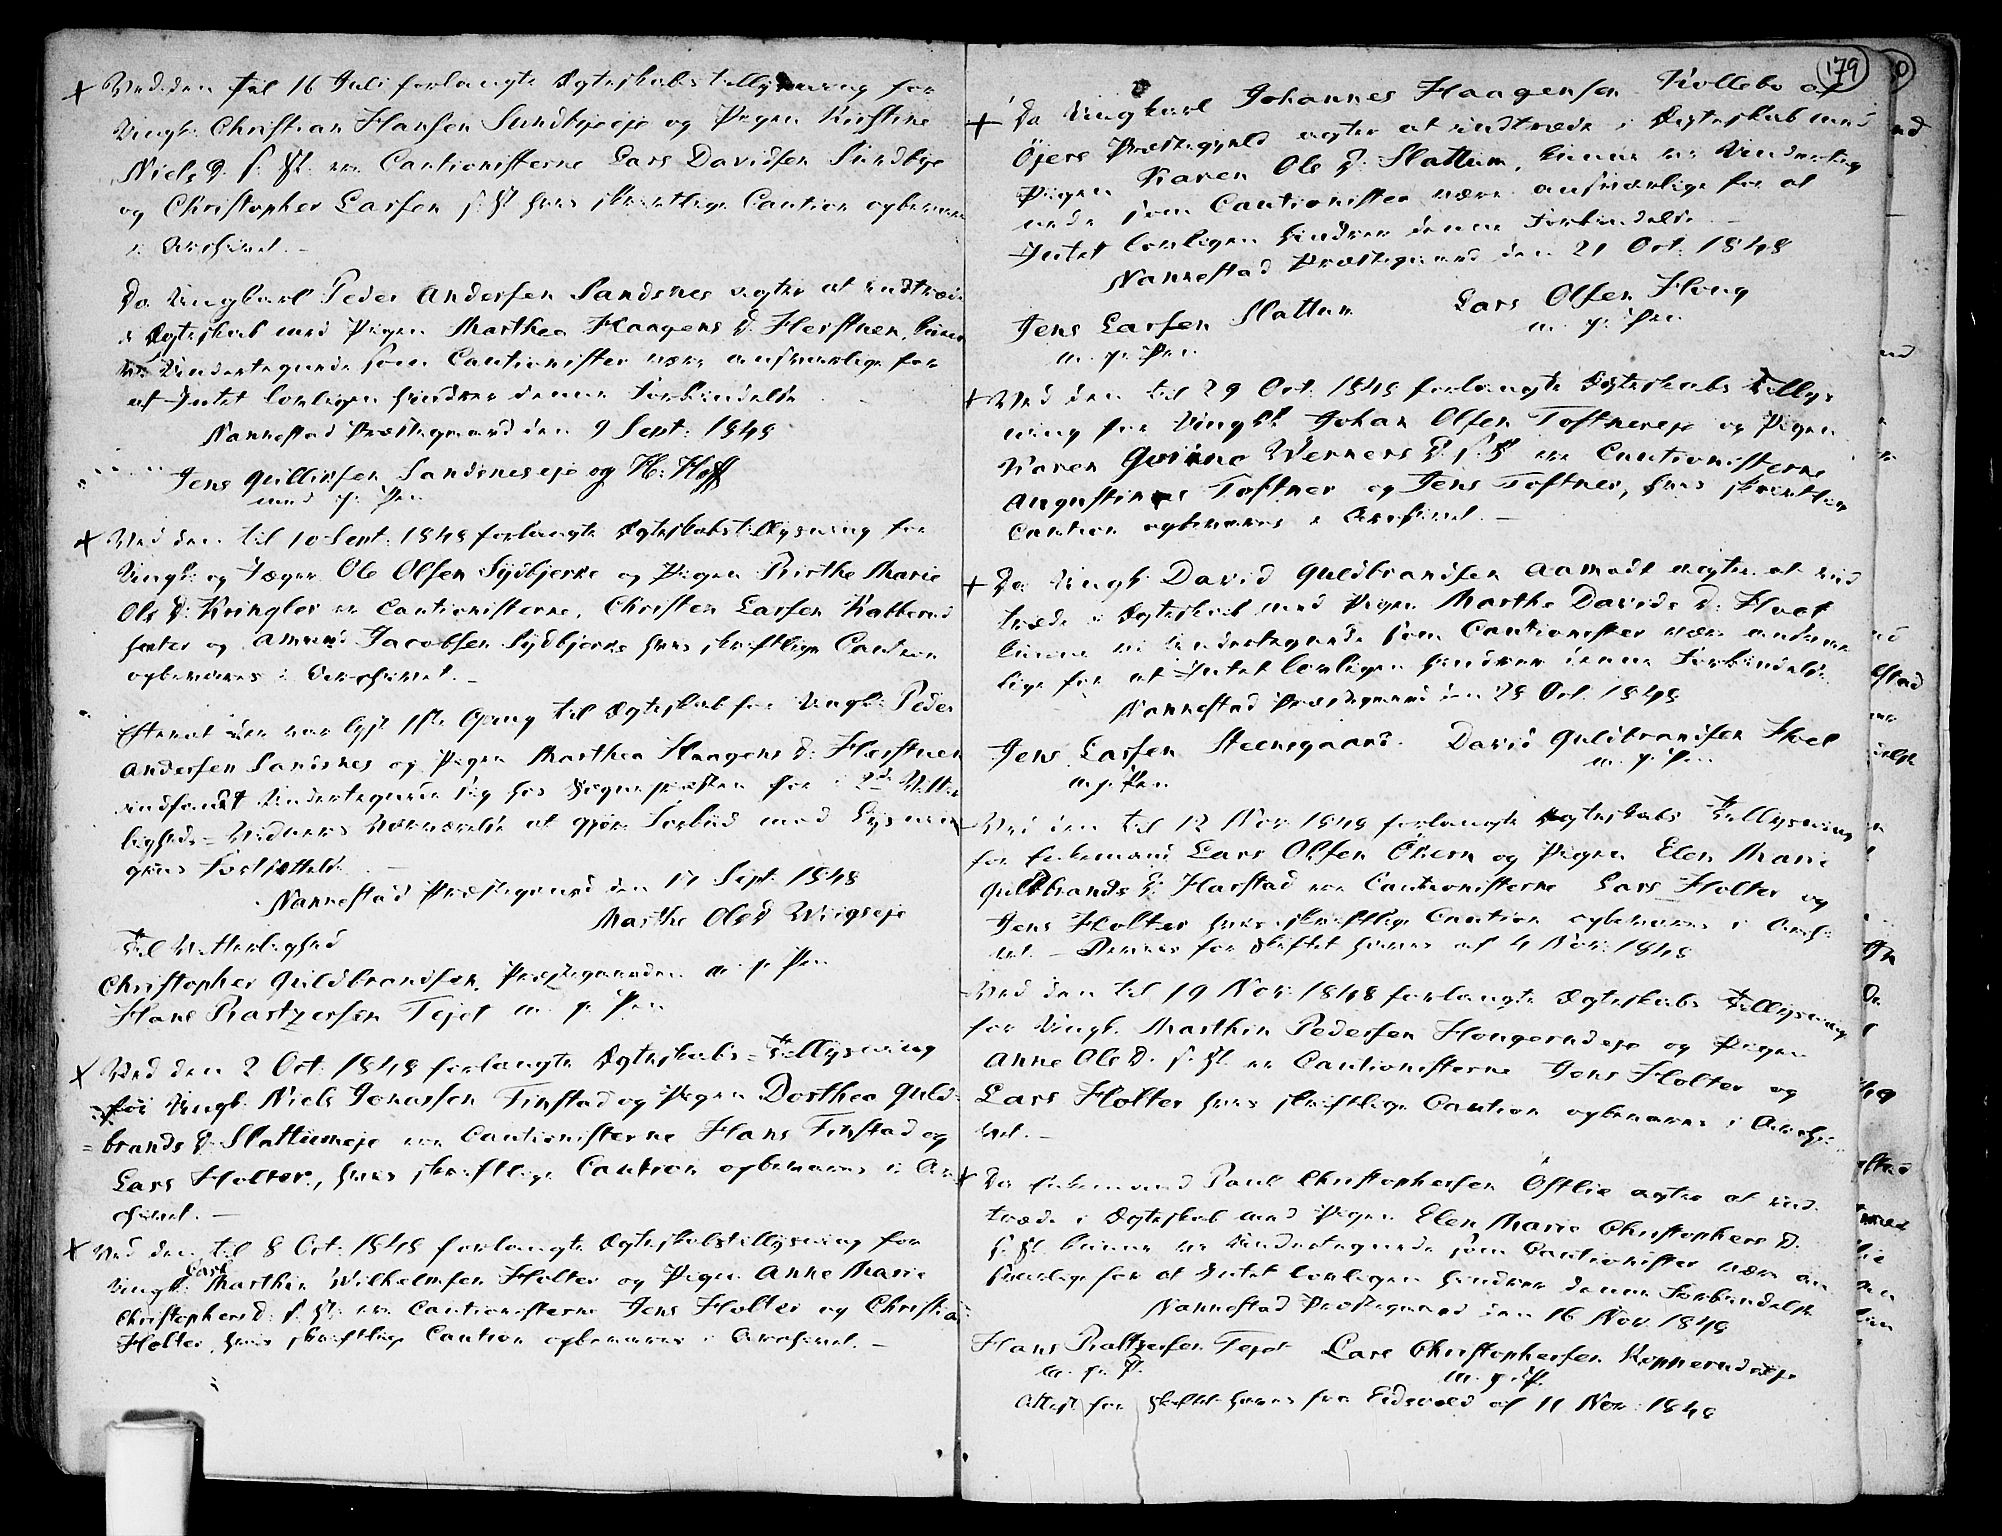 Ved den til 16 Juli forlangte Ægteskabs tillysning for
Ungk: Christian Hansen Sundbyeje og Pigen Kirstine
Niels D. s: St: ere Cautionisterne Lars Davidsen Sundbye
og Christopher Larsen s: St hvis skriftlige Caution opbevares
i Archivet. –
Da Ungkarl Peder Andersen Sandsnes agter at indtræde
i Ægteskab med Pigen Marthea Haagens D. Herstuen, kunne
vi Undertegnede som Cautionister være ansvarlige for
at Intet lovligen hindrer denne Forbindelse
Nannestad Præstegaard den 9 Sept: 1848
Jens Gullirsen Sandsneseje og H: Hoff
med p: Pen
Ved den til 10 Sept: 1848 forlangte Ægteskabstillysning for
Ungk: og Jæger Ole Olsen Sydbjerke og Pigen Birthe Marie
Ols D: Kringler ere Cautionisterne, Christen Larsen Kabberud
sæter og Amund Jacobsen Sydbjerke hvis skriftlige Caution
opbevares i Archivet. –
Efterat der var lyst 1ste Gang til Ægteskab for Ungk: Peder
Andersen Sandsnes og Pigen Marthea Haagens D: Herstuen
indfandt Undertegnede sig hos Sognepræsten for i 2de Vitter
ligheds-Vidners Nærværelse at gjøre Forbud mod Lysnin
gens Fortsættelse. –
Nannestad Præstegaard den 17 Sept. 1848
Marthe Ols D Wiigseje
Til Vitterlighed
Christopher Guldbrandsen, Præstegaarden m. p. Pen
Hans Rastzersen Tejet m. p. Pen
Ved den 2 Oct: 1848 forlangte Ægteskabs-Tillysning
for Ungk. Niels Jonassen Finstad og Pigen Dorthea Guld-
brands D. Slattumeje ere Cautionisterne Hans Finstad og
Lars Holter, hvis skriftlige Caution opbevares i Ar
chivet. –
Ved den til 8 Oct: 1848 forlangte Ægteskabstillysning for
Carl
Ungk: Marthin Wilhelmsen Holter og Pigen Anne Marie
Christophers D. s. St: ere Cautionisterne Jens Holter og Christian
Holter, hvis skriftlige Caution opbevares i Archivet. –
179
Da Ungkarl Johannes Haagensen Kollebo af
Öjers Præstegjeld agter at indtræde i Ægteskab med
Pigen Karen Ols D: Slattum, kunne vi Underteg
nede som Cautionister være ansvarlige for at
Intet lovligen hindrer denne Forbindelse –
Nannestad Præstegaard den 21 Oct: 1848
Jens Larsen Slattum Lars Olsen Houg
m. p: Pen m. p: Pen
Ved den til 29 Oct: 1848 forlangte Ægteskabs Tillys
ning for Ungk Johan Olsen Toftnereje og Pigen
Karen Gurine Werners D: s. St ere Cautionisterne
Augustinus Toftner og Jens Toftner, hvis skriftlige
Caution opbevares i Archivet. –
Da Ungk David Guldbrandsen Aamodt agter at ind
træde i Ægteskab med Pigen Marthe Davids D: Hoel
kunne vi Undertegnede som Cautionister være ansvar
lige for at Intet lovligen hindrer denne Forbindelse.
Nannestad Præstegaard den 28 Oct. 1848
Jens Larsen Steensgaard. David Guldbrandsen Hoel
m p. Pen m. p. Pen
Ved den til 12 Nov 1848 forlangte Ægteskabs Tillysning
for Enkemand Lars Olsen Ökern og Pigen Elen Marie
Guldbrands D: Harstad ere Cautionisterne Lars Holter og
Jens Holter hvis skriftlige Caution opbevares i Archi
vet. – Beviis for Skiftet haves af 4 Nov: 1848
Ved den til 19 Nov: 1848 forlangte Ægteskabs Tillysning
for Ungk. Marthin Pedersen Hongerudeje og Pigen
Anne Ols D. s. St. ere Cautionisterne Jens Holter og
Lars Holter hvis skriftlige Caution opbevares i Archi
vet. –
Da Enkemand Paul Christophersen Östlie agter at ind
træde i Ægteskab med Pigen Elen Marie Christophers D.
s. St. kunne vi Undertegnede som Cautionister være an
svarlige for at Intet lovligen hindrer denne Forbindelse
Nannestad Præstegaard den 16 Nov. 1848
Hans Rastzersen Tejet Lars Christophersen Kopperudeje
m. p. P. m. p. P.
Attest for Skiftet haves fra Eidsvold af 11 Nov. 1848